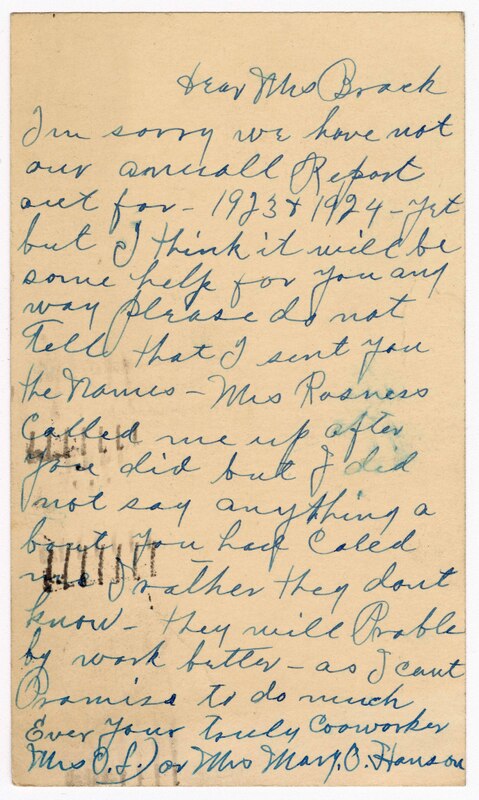 Dear Mrs Brack
I'm sorry we have not
our annuall Report
out for - 1923 & 1924 - yet
but I think it will be
some help for you any
way please do not
Tell that I sent you
the Names - Mrs Rosness
Called me up after
you did but I did
not say anything a
bout you had Caled
me I rather they dont
know - they will Proble
by work better - as I cant
Promise to do much
Ever Your truly Cooworker
Mrs O.S.) or Mrs Mary. O. Hanson